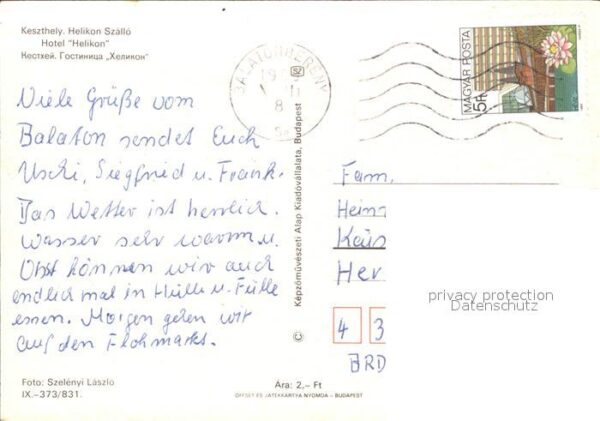 Keszthely. Helikon Szálló
Hotel "Helikon"
Кестхей. Гостиница „Хеликон"
Viele Grüße vom
Balaton sendet Euch
Uschi, Siegfried u. Frank.
Das Wetter ist herrlich.
Wasser sehr warm u.
Obst können wir auch
endlich mal in Hülle u. Fülle
essen. Morgen gehen wir
auf den Flohmarkt.
Foto: Szelényi László
IX.–373/831.
Ára: 2,– Ft
OFFSET ÉS JÁTÉKKÁRTYA NYOMDA – BUDAPEST
© Képzőművészeti Alap Kiadóvállalata, Budapest
BALATONBERÉNY
MAGYAR POSTA
5Ft
Fam.
Hein
Kais
Her
privacy protection
Datenschutz
4 3
BRD